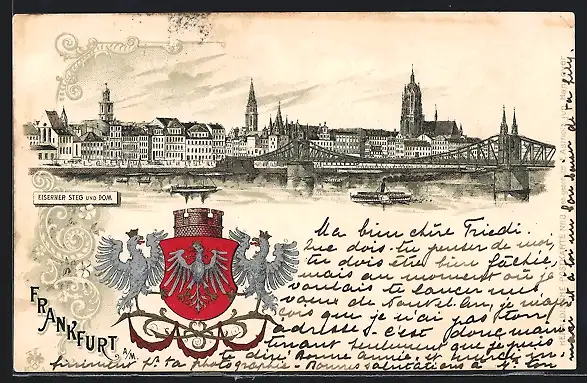 EISERNER STEG UND DOM.
FRANKFURT a/M.
Ma bien chère Friedi.
Que dois-tu penser de moi,
tu dois être bien fâchée,
mais au moment où je
voulais te lancer mes
vœux de Nouvel-An, je m'aper
çois que je n'ai pas ton
adresse. - C'est donc main
tenant seulement que je puis
te dire: Bonne année. et merci
sincèrement pr ta photographie. - Bonnes salutations à
mari et à toi un bon baiser d ta